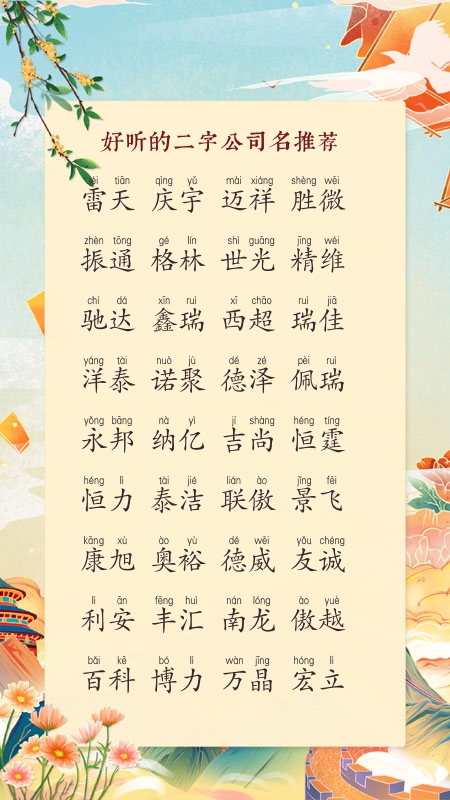 好听的二字公司名推荐
léi tiān qìng yǔ mài xiáng shèng wēi
雷天 庆宇 迈祥 胜微
zhèn tōng gé lín shì guāng jīng wéi
振通 格林 世光 精维
chí dá xīn ruì xī chāo ruì jiā
驰达 鑫瑞 西超 瑞佳
yáng tài nuò jù dé zé pèi ruì
洋泰 诺聚 德泽 佩瑞
yǒng bāng nà yì jí shàng héng tíng
永邦 纳亿 吉尚 恒霆
héng lì tài jié lián ào jǐng fēi
恒力 泰洁 联傲 景飞
kāng xù ào yù dé wēi yǒu chéng
康旭 奥裕 德威 友诚
lì ān fēng huì nán lóng ào yuè
利安 丰汇 南龙 傲越
bǎi kē bó lì wàn jīng hóng lì
百科 博力 万晶 宏立